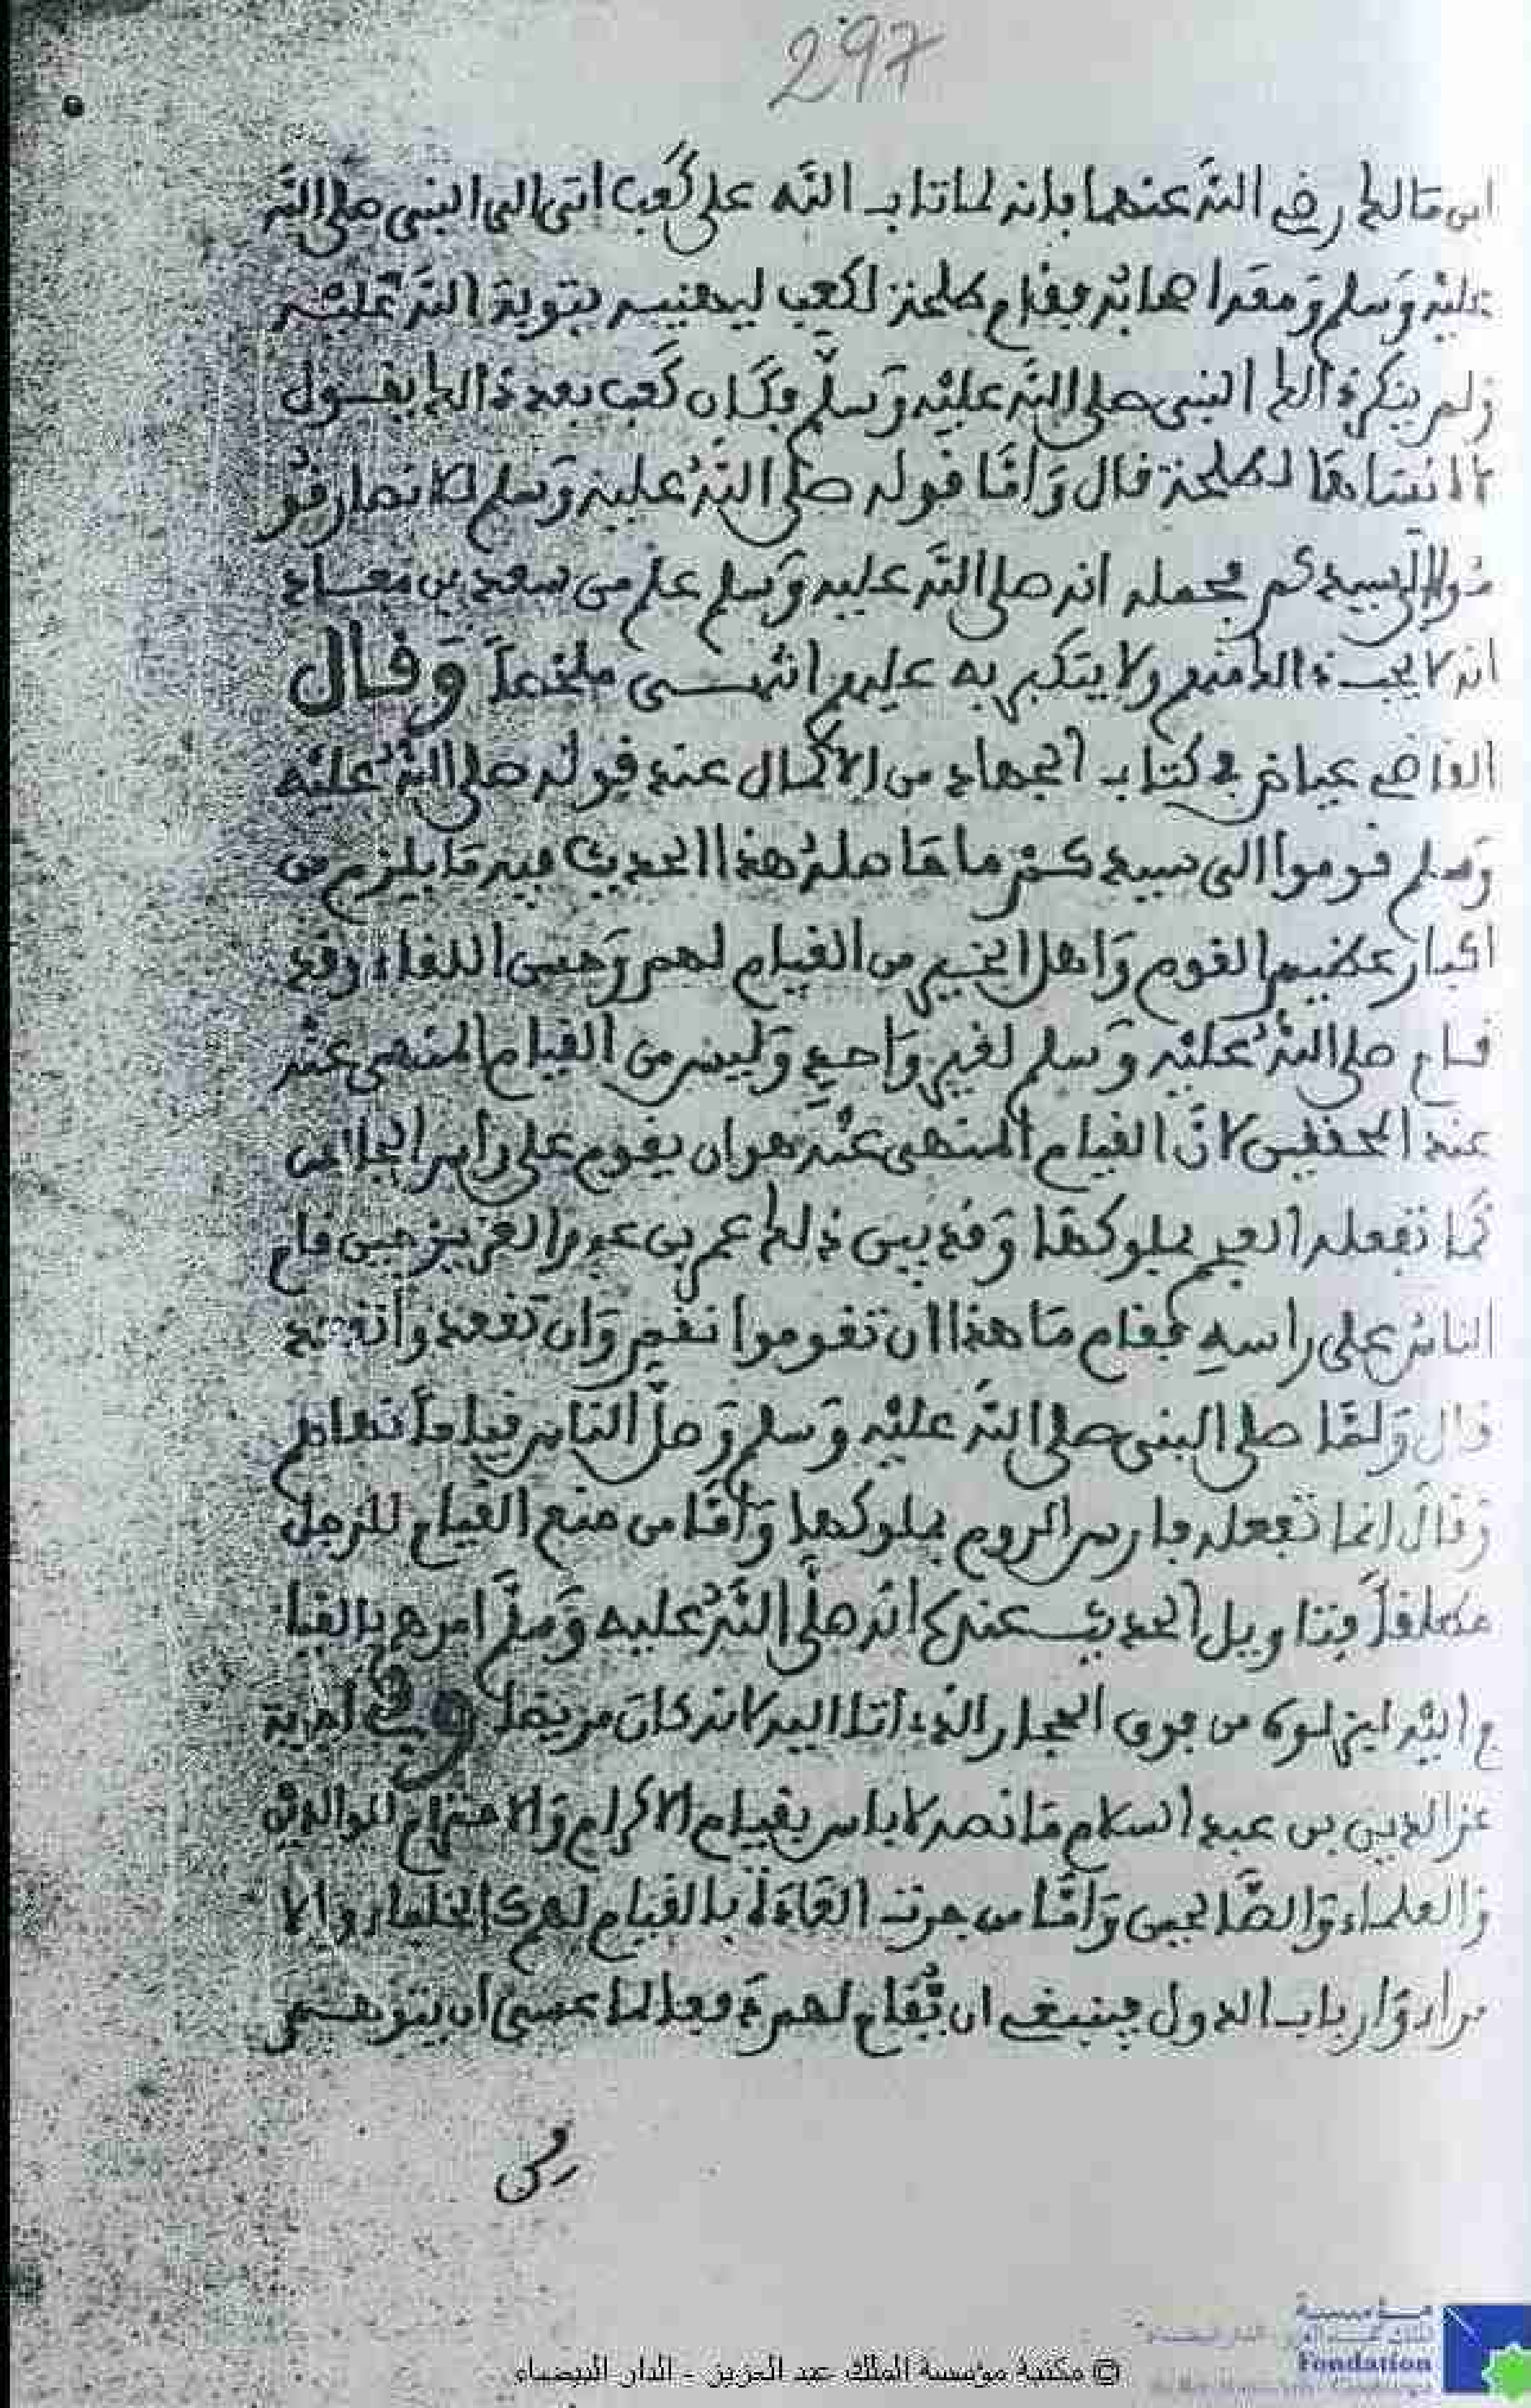 297
ابن مالك رضي الله عنهما فإنه لما تاب الله على كعب اتى الى النبي صلى الله
عليه وسلم ومعه اصحابه فقام طلحة لكعب ليهنيه بتوبة الله عليه
ولم ينكر ذالك النبي صلى الله عليه وسلم فكان كعب بعد ذالك يقول
لا انساها لطلحة قال وَامّا قوله صلى الله عليه وسلم للانصار قو
موا الى سيدكم فمحمله انه صلى الله عليه وسلم علم من سعد بن معاد
انه لا يحب ذالك منهم ولا يتكبر به عليهم انتهى ملخصاً وقال
القاضي عياض في كتاب الجهاد من الاكمال عند قوله صلى الله عليه
وسلم قوموا الى سيدكم ما حاصله هذا الحديث فيه ما يلزم من
اكبار عظيم القوم وَاهل الخير من القيام لهم وَحسن اللقاء وقد
قام صلى الله عليه وسلم لغير وَاحد وَليس من القيام المنهى عنه
عند المحققين لانّ القيام المنهى عنه هو ان يقوم على راس الجالس
كما تفعله العجم بملوكها وَقد بين ذلك عمر بن عبد العزيز حين قام
الناس على راسهِ فقام مَا هذا ان تقوموا نقم وَان تقعدوا نقعد
قال وَلمّا صلى النبي صلى الله عليه وسلم وَصلّ الناس قياماً نهاهم
وَقال انما تفعله فارس الروم بملوكها وَامّا من منع القيام للرجل
مطلقاً فتاويل الحديث عنده انه صلى الله عليه وَسلم امرهم بالقيا
م اليه لينزلوه من فوق الحمار الذي اتا اليه لانه كان مريضا وفي اجوبة
عز الدين بن عبد السلام مَا نصه لا باس بقيام الاكرام وَالاحترام للوالدين
وَالعلماء وَالصّالحين وَامّا من جرت العَادَة بالقيام لهم كالخلفاء والا
مراء وَارباب الدول فينبغي ان يُقام لهم دفعا لما عسى ان يتوهم
من
مؤسسة
Fondation
© مكتبة مؤسسة الملك عبد العزيز - الدار البيضاء